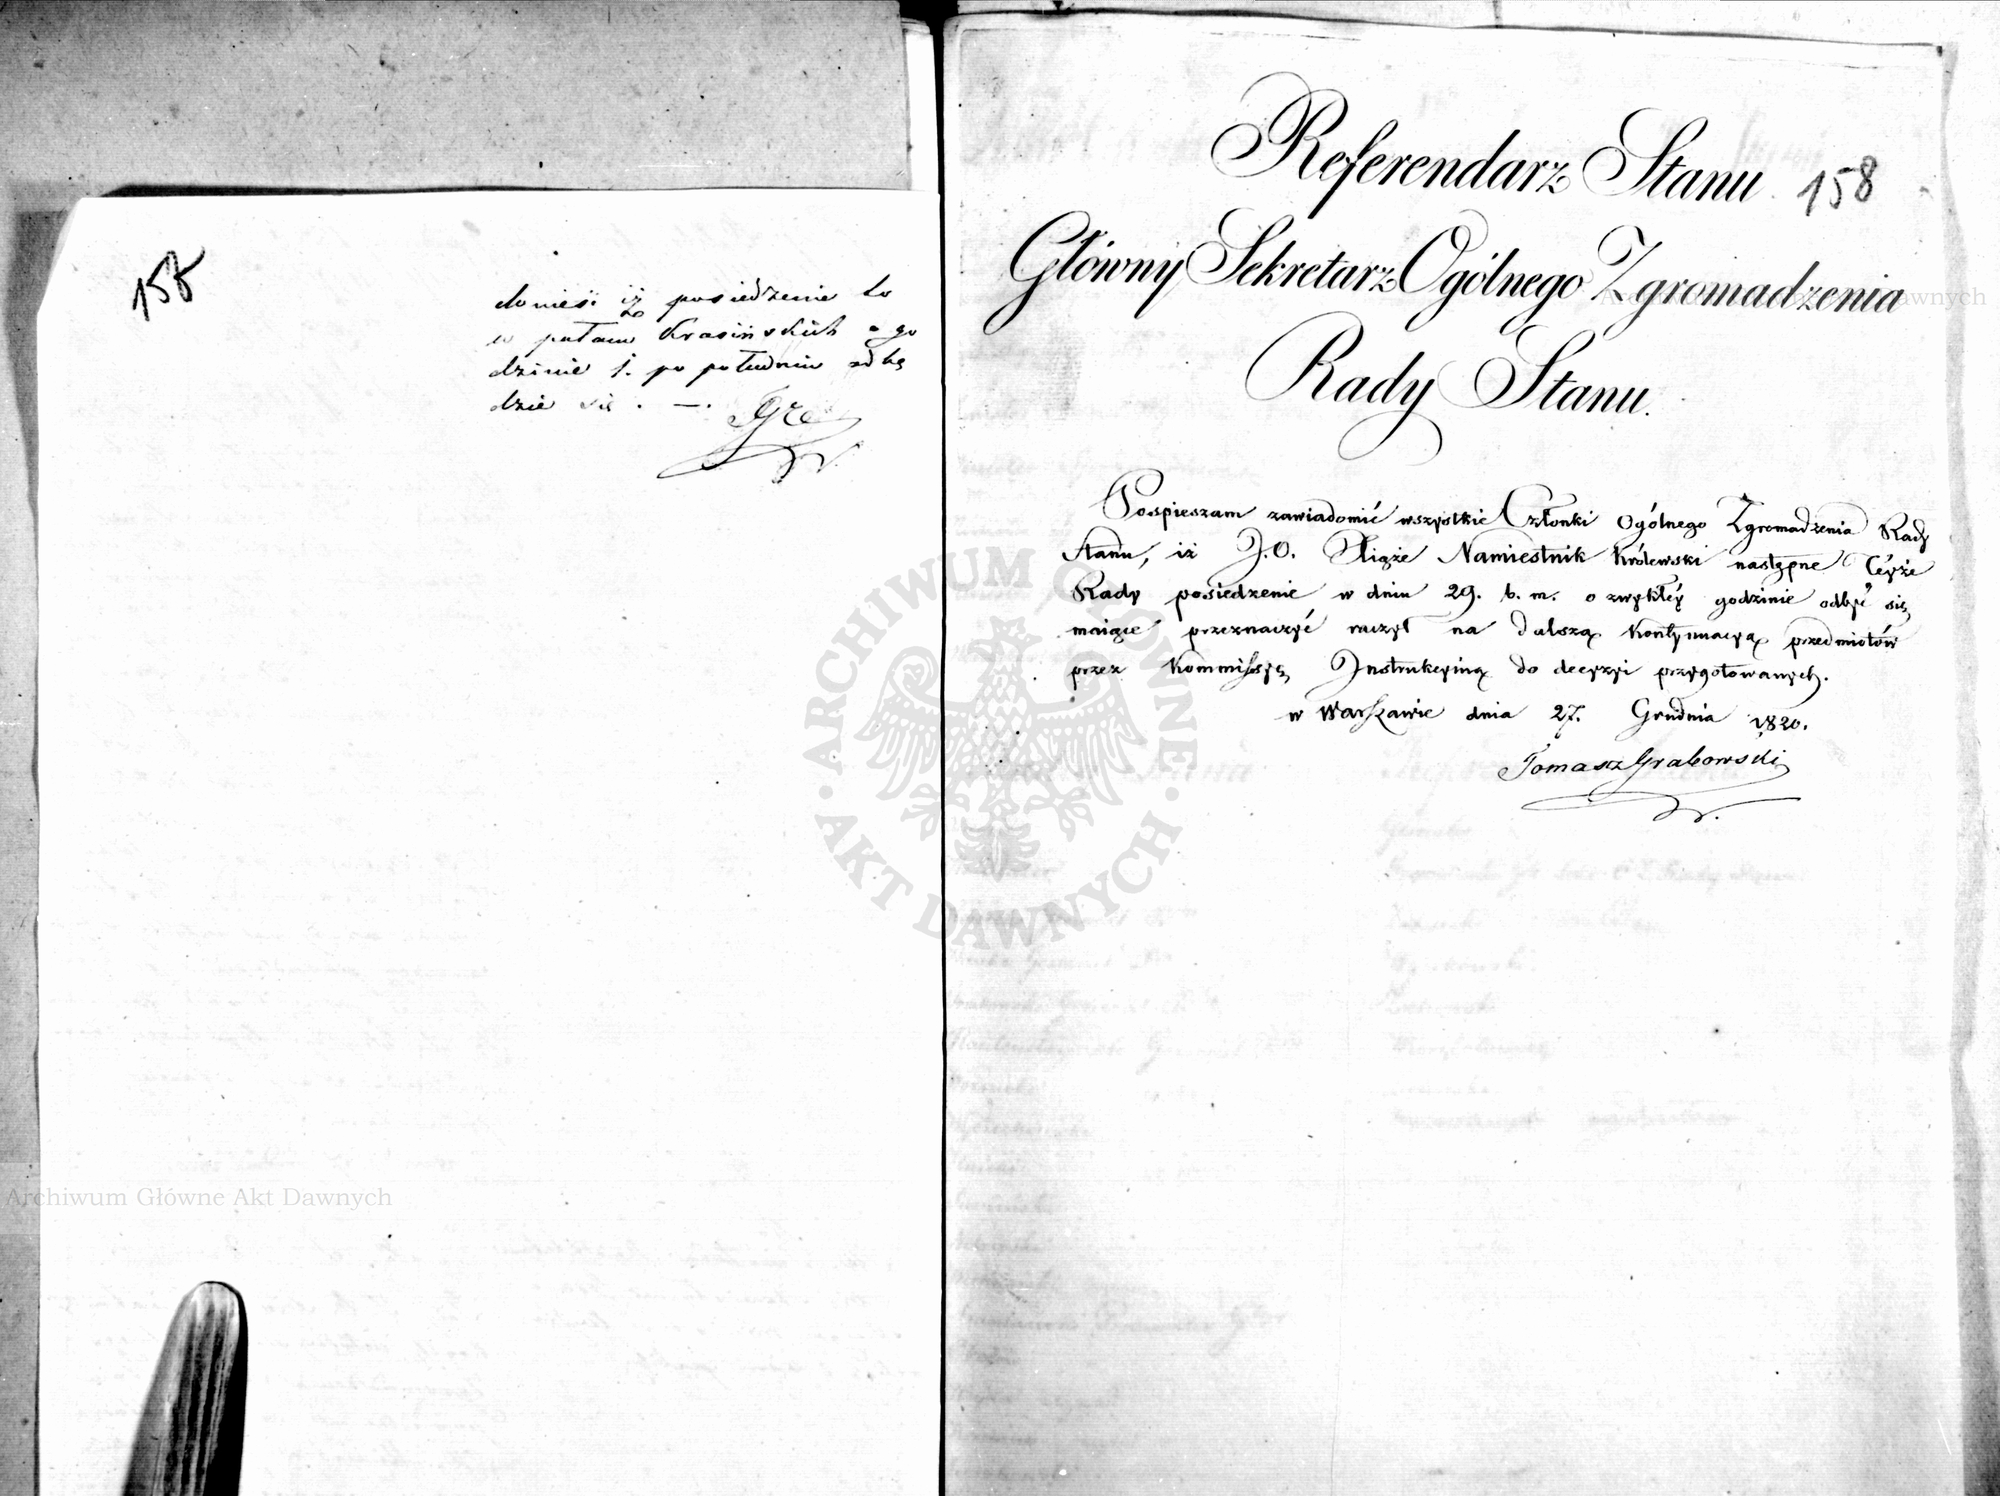 158
donieść iż posiedzenie to
w pałacu Krasińskich o go
dzinie 1. po południu odbę
dzie się. —.
Referendarz Stanu. 158
Główny Sekretarz Ogólnego Zgromadzenia
Rady Stanu.
Pospieszam zawiadomić wszystkie Członki Ogólnego Zgromadzenia Rady
Stanu, iż J.O. Xiąże Namiestnik Królewski następne Teyże
Rady posiedzenie w dniu 29. b. m. o zwykłey godzinie odbyć się
maiące przeznaczyć raczył na dalszą kontynuacyą przedmiotów
przez Kommissyę Instrukcyiną do decyzyi przygotowanych.
w Warszawie dnia 27. Grudnia 1820.
Tomasz Grabowski
ARCHIWUM GŁÓWNE AKT DAWNYCH
Archiwum Główne Akt Dawnych
Archiwum Główne Akt Dawnych